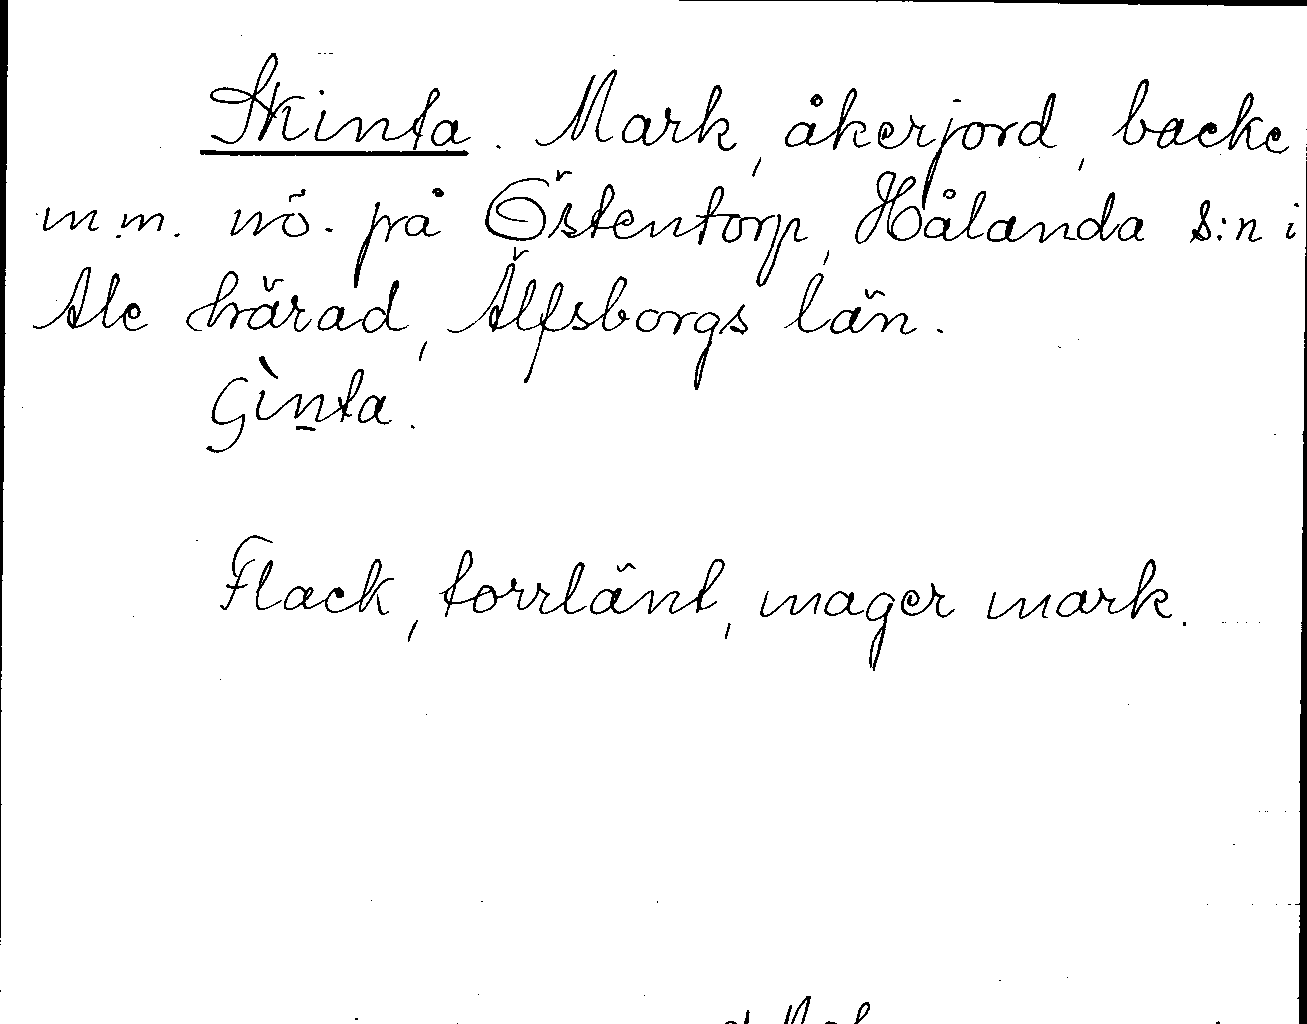 Skinta. Mark, åkerjord, backe
m.m. nö. på Östentorp, Hålanda s:n i
Ale härad, Älfsborgs län.
Gìn̲ta.
Flack, torrlänt, mager mark.